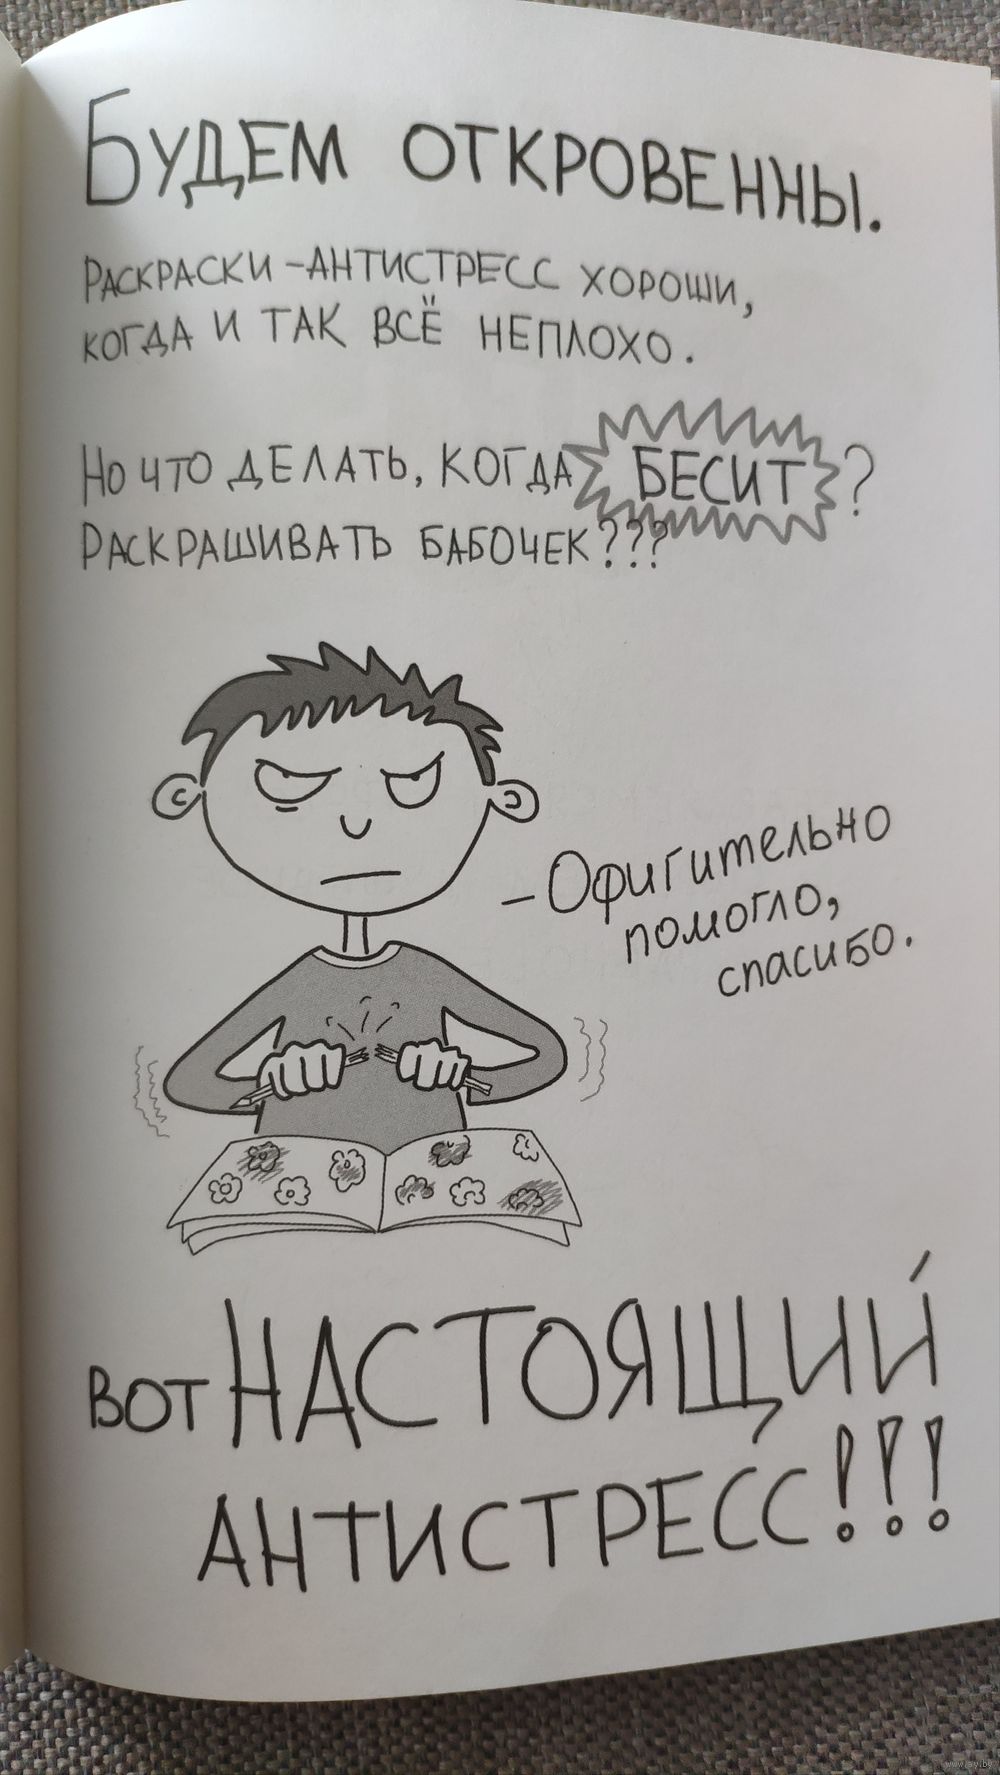 БУДЕМ ОТКРОВЕННЫ.
РАСКРАСКИ-АНТИСТРЕСС ХОРОШИ,
КОГДА И ТАК ВСЁ НЕПЛОХО.
НО ЧТО ДЕЛАТЬ, КОГДА БЕСИТ?
РАСКРАШИВАТЬ БАБОЧЕК???
-Офигительно
помогло,
спасибо.
ВОТ НАСТОЯЩИЙ
АНТИСТРЕСС!!!
www.ay.by